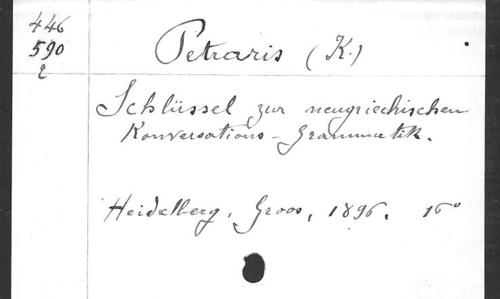 446
590
Petraris (K.)
Schlüssel zur neugriechischen
Konversations-Grammatik.
Heidelberg, Groos, 1896. 16°